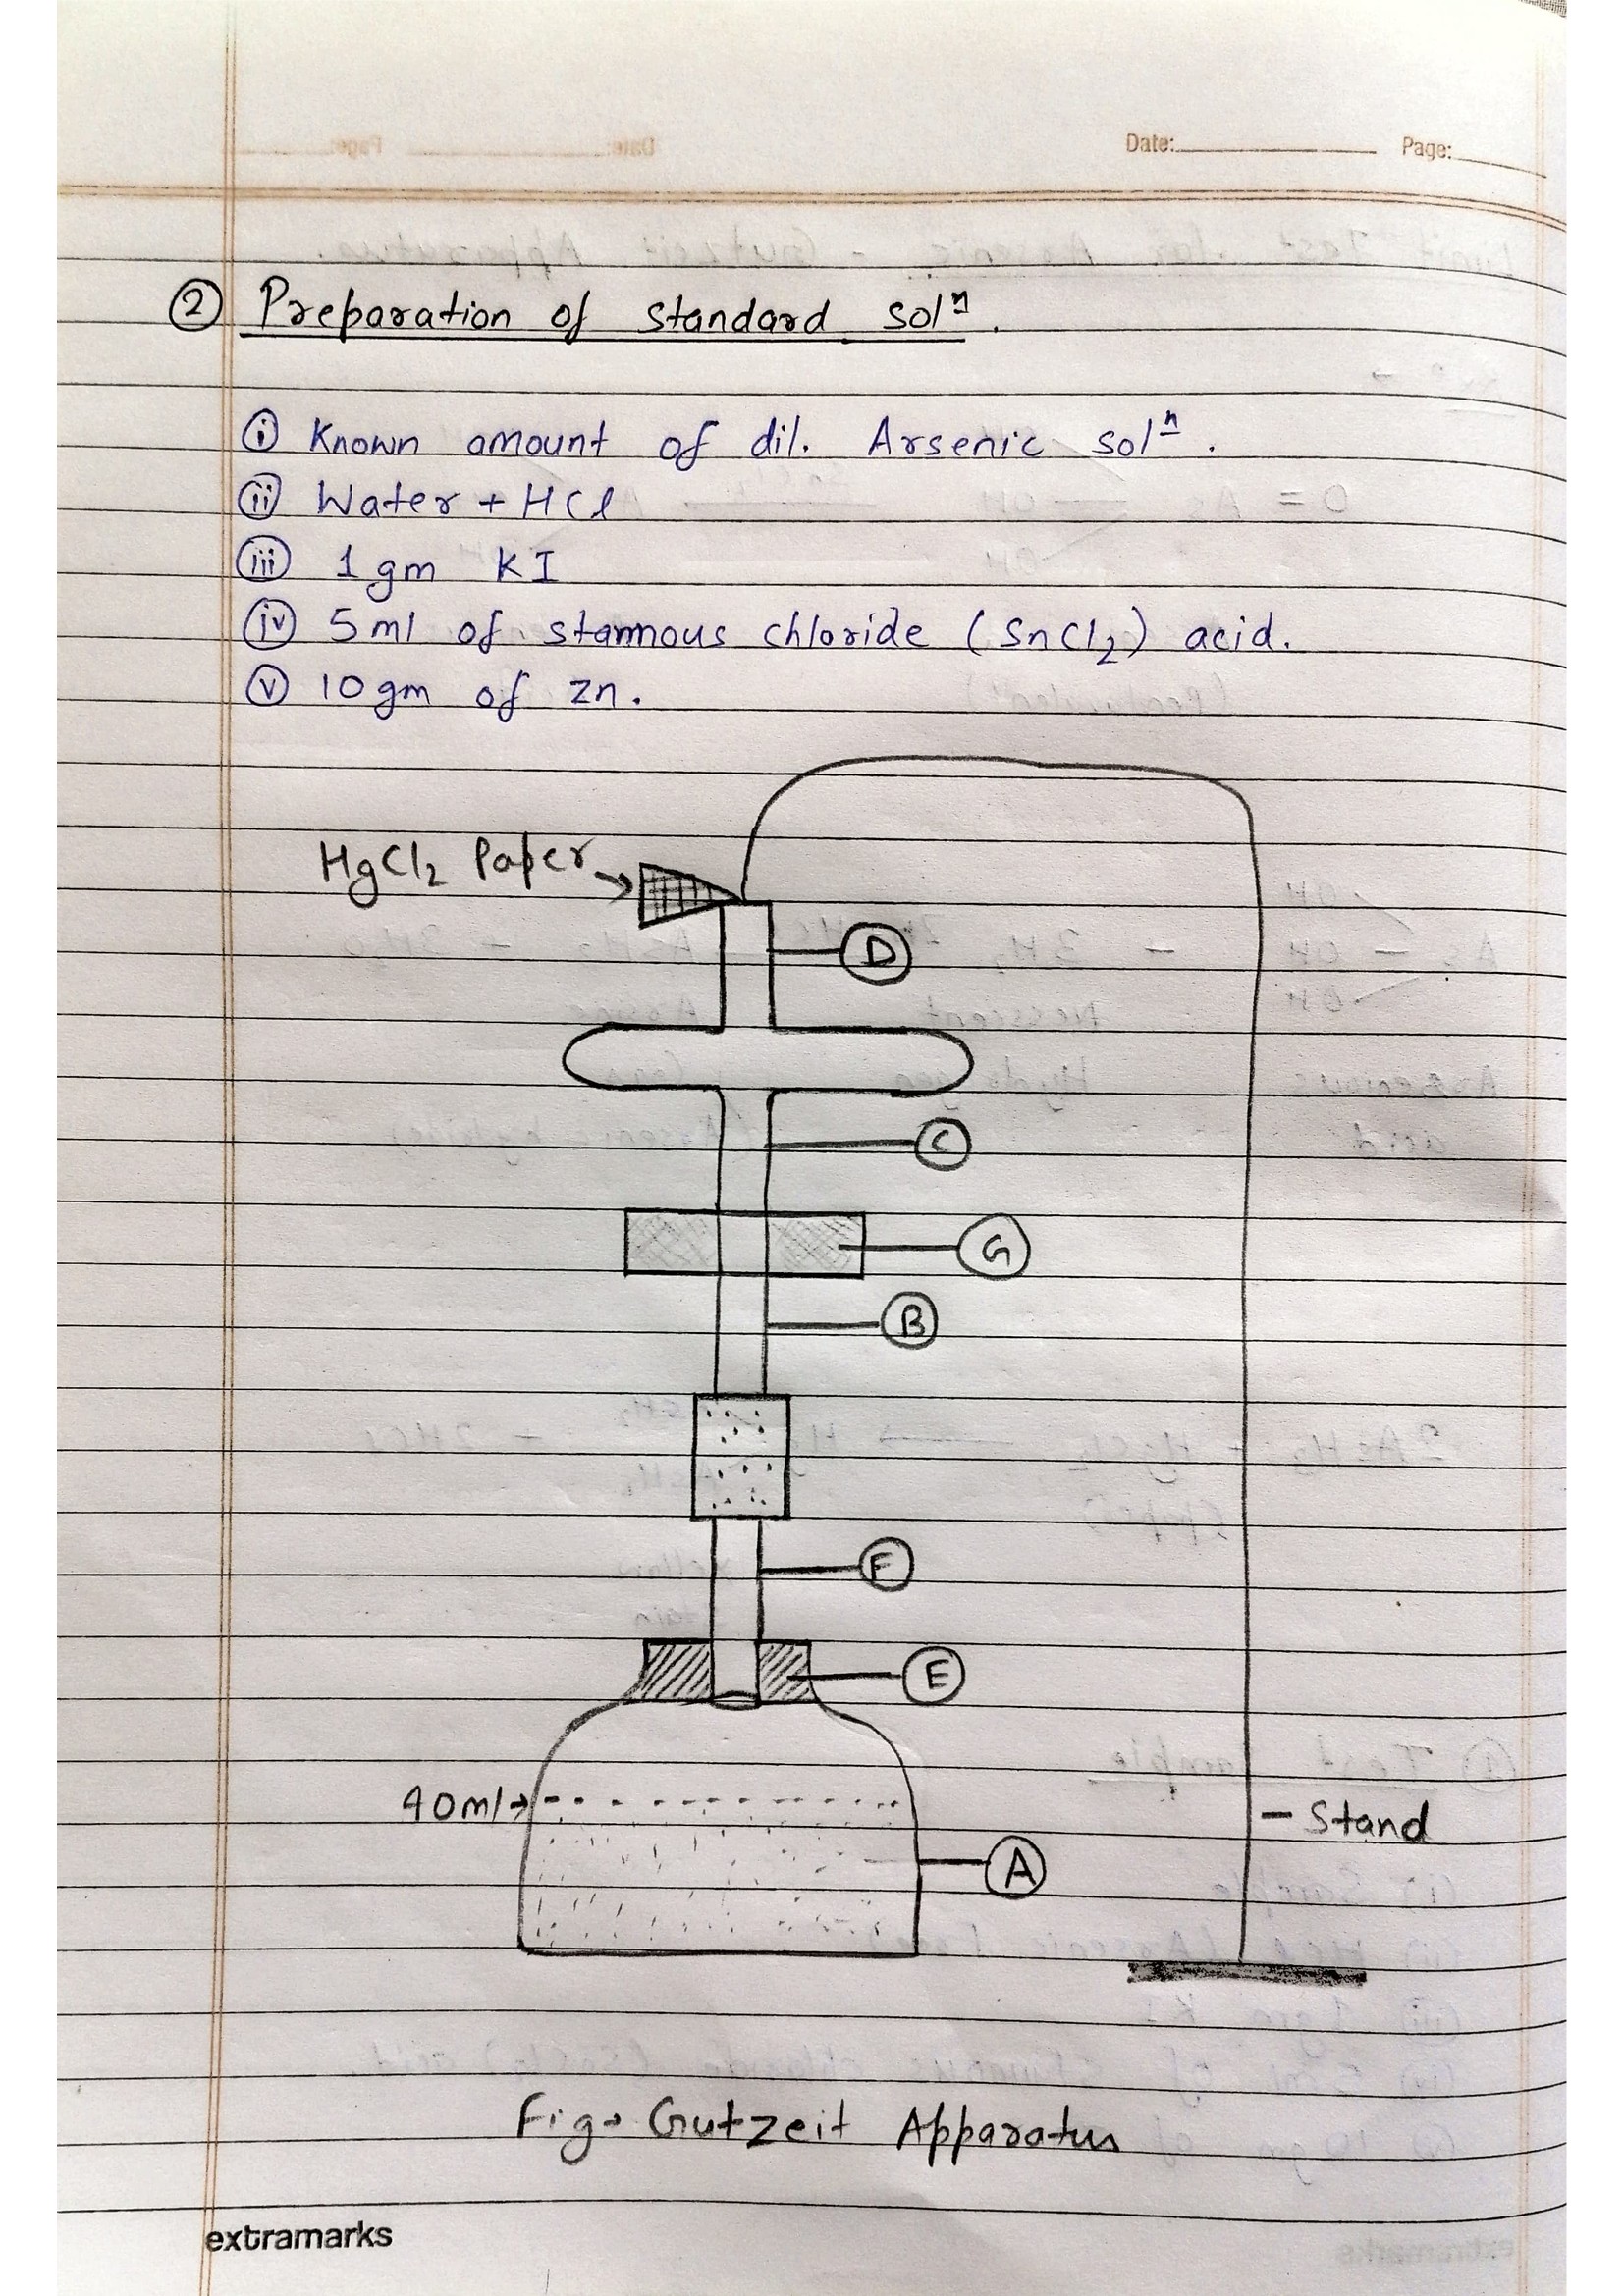 Date: Page:
② Preparation of standard solⁿ.
ⓘ Known amount of dil. Arsenic solⁿ.
(ii) Water + HCl
(iii) 1 gm KI
(iv) 5ml of stannous chloride (SnCl₂) acid.
(v) 10gm of zn.
HgCl₂ Paper→
D
C
G
B
F
E
40ml→
A
- Stand
Fig→ Gutzeit Apparatus
extramarks